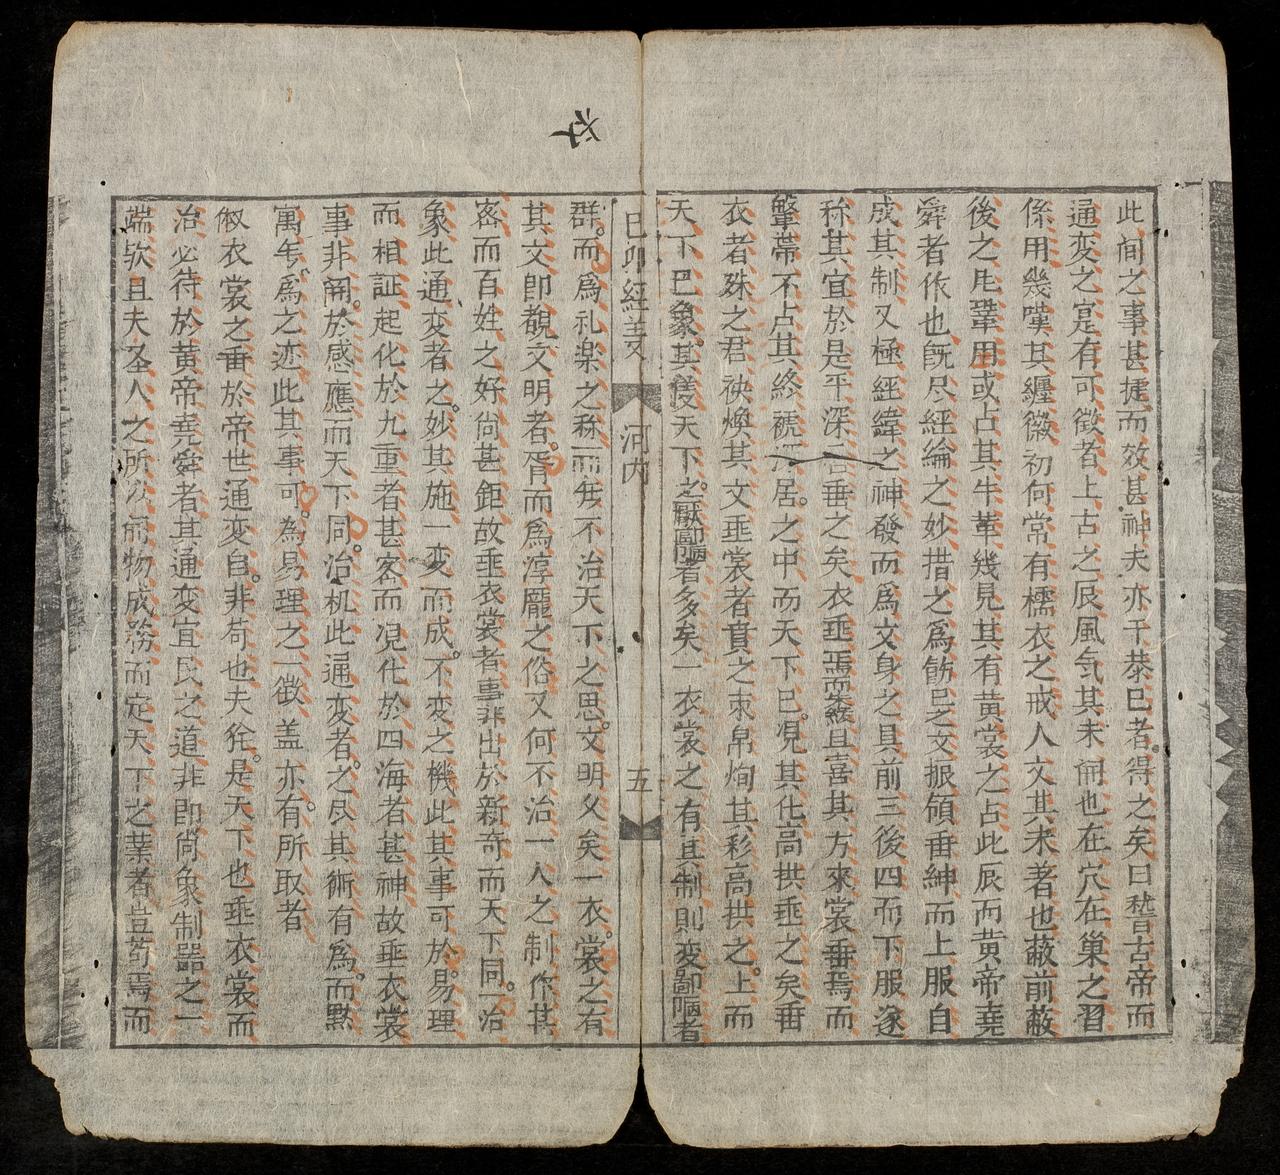 此间之事甚捷而效甚神夫亦千恭巳者得之矣曰嵆古帝而
通变之寔有可徵者上古之辰風气其未開也在穴在巢之習
係用幾嘆其纏徽初何常有襦衣之戒人文其未著也蔽前蔽
後之庀鞏用或占其牛革幾見其有黄裳之占此辰而黄帝堯
舜者作也既尽經綸之妙措之為飭邑之文振領垂紳而上服自
成其制又極經緯之神發而為文身之具前三後四而下服遂
称其宜於是平深 垂之矣衣垂焉 且喜其方來裳垂焉而
鞶帶不占其終褫 居之中而天下巳况其化高拱垂之矣垂
衣者殊之君 袂煥其文垂裳者賁之束帛炯其彩高拱之上而
天下巳象其儀天下之獣 者多矣一衣裳之有其制則变鄙陋者
巳卯經義 河内 五
群而為礼楽之稱而無不治天下之思文明久矣一衣裳之有
其文即覩文明者胥而為淳龐之俗又何不治一人之制作其
客而百姓之好尚甚鉅故垂衣裳者事非出於新奇而天下同治
象此通变者之妙其施一变而成不变之機此其事可於易理
而相証起化於九重者甚客而况化於四海者甚神故垂衣裳
事非開於感應而天下同治机此通变者之尽其術有為而默
寓無為之迹此其事可為易理之一徵盖亦有所取者
叙衣裳之垂於帝世通变自非苟也夫 是天下也垂衣裳而
治必待於黄帝堯舜者其通变宜民之道非即尚象制噐之一
端欤且夫圣人之所以開物成務而定天下之業者豈苟焉而